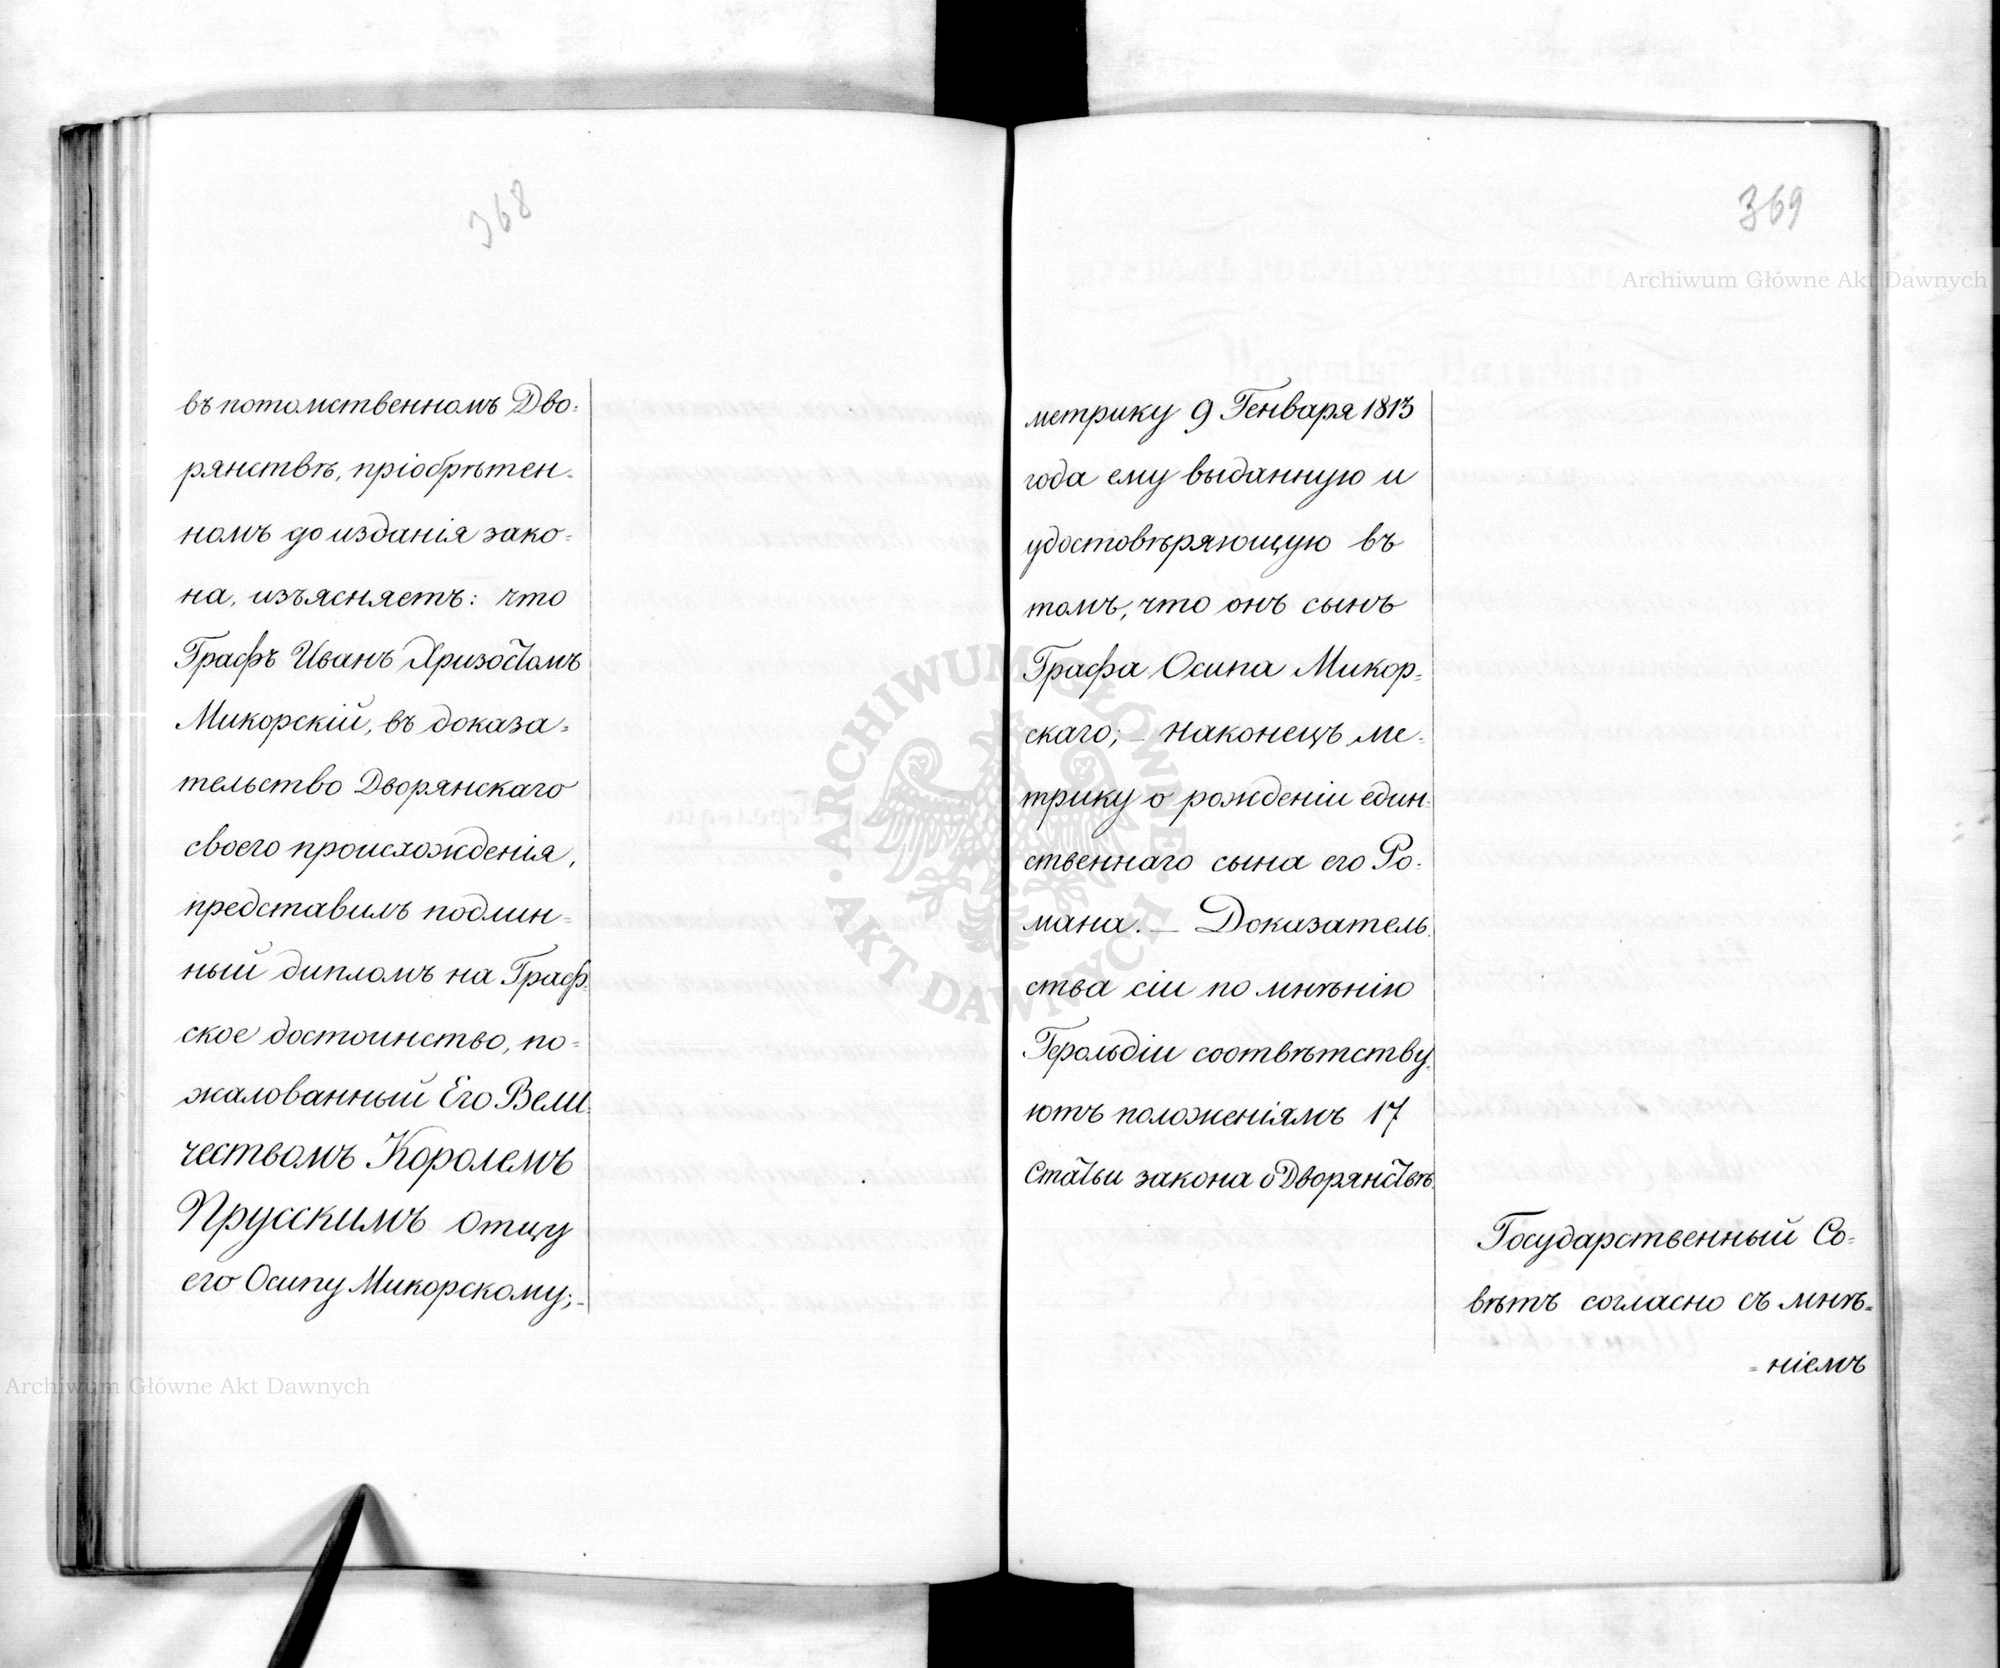 368
въ потомственномъ Дво-
рянствѣ, пріобрѣтен-
номъ до изданія зако-
на, изъясняетъ: что
Графъ Иванъ Хризостомъ
Микорскій, въ доказа-
тельство Дворянскаго
своего происхожденія,
представилъ подлин-
ный дипломъ на Граф-
ское достоинство, по-
жалованный Его Вели-
чествомъ Королемъ
Прусскимъ Отцу
его Осипу Микорскому;-
369
метрику 9 Генваря 1813
года ему выданную и
удостовѣряющую въ
томъ, что онъ сынъ
Графа Осипа Микор-
скаго; – наконецъ ме-
трику о рожденіи един-
ственнаго сына его Ро-
мана. – Доказатель-
ства сіи по мнѣнію
Герольдіи соотвѣтству-
ютъ положеніямъ 17
Статьи закона о Дворянствѣ.
Государственный Со-
вѣтъ согласно съ мнѣ-
-ніемъ
Archiwum Główne Akt Dawnych
Archiwum Główne Akt Dawnych
ARCHIWUM GŁÓWNE
AKT DAWNYCH